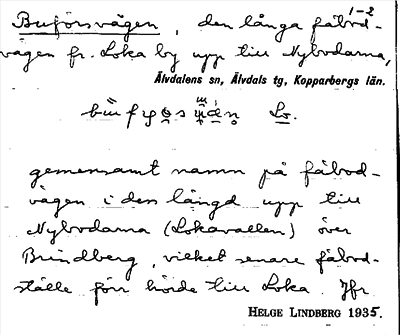 1-2
Buförsvägen, den långa fäbod-
vägen fr. Loka by upp till Nybodarna,
Älvdalens sn, Älvdals tg, Kopparbergs län.
Lo.
gemensamt namn på fäbod-
vägen i den längd upp till
Nybodarna (Lokavallen) över
Brindberg, vilket senare fäbod-
ställe förr hörde till Loka. Jfr
HELGE LINDBERG 1935.